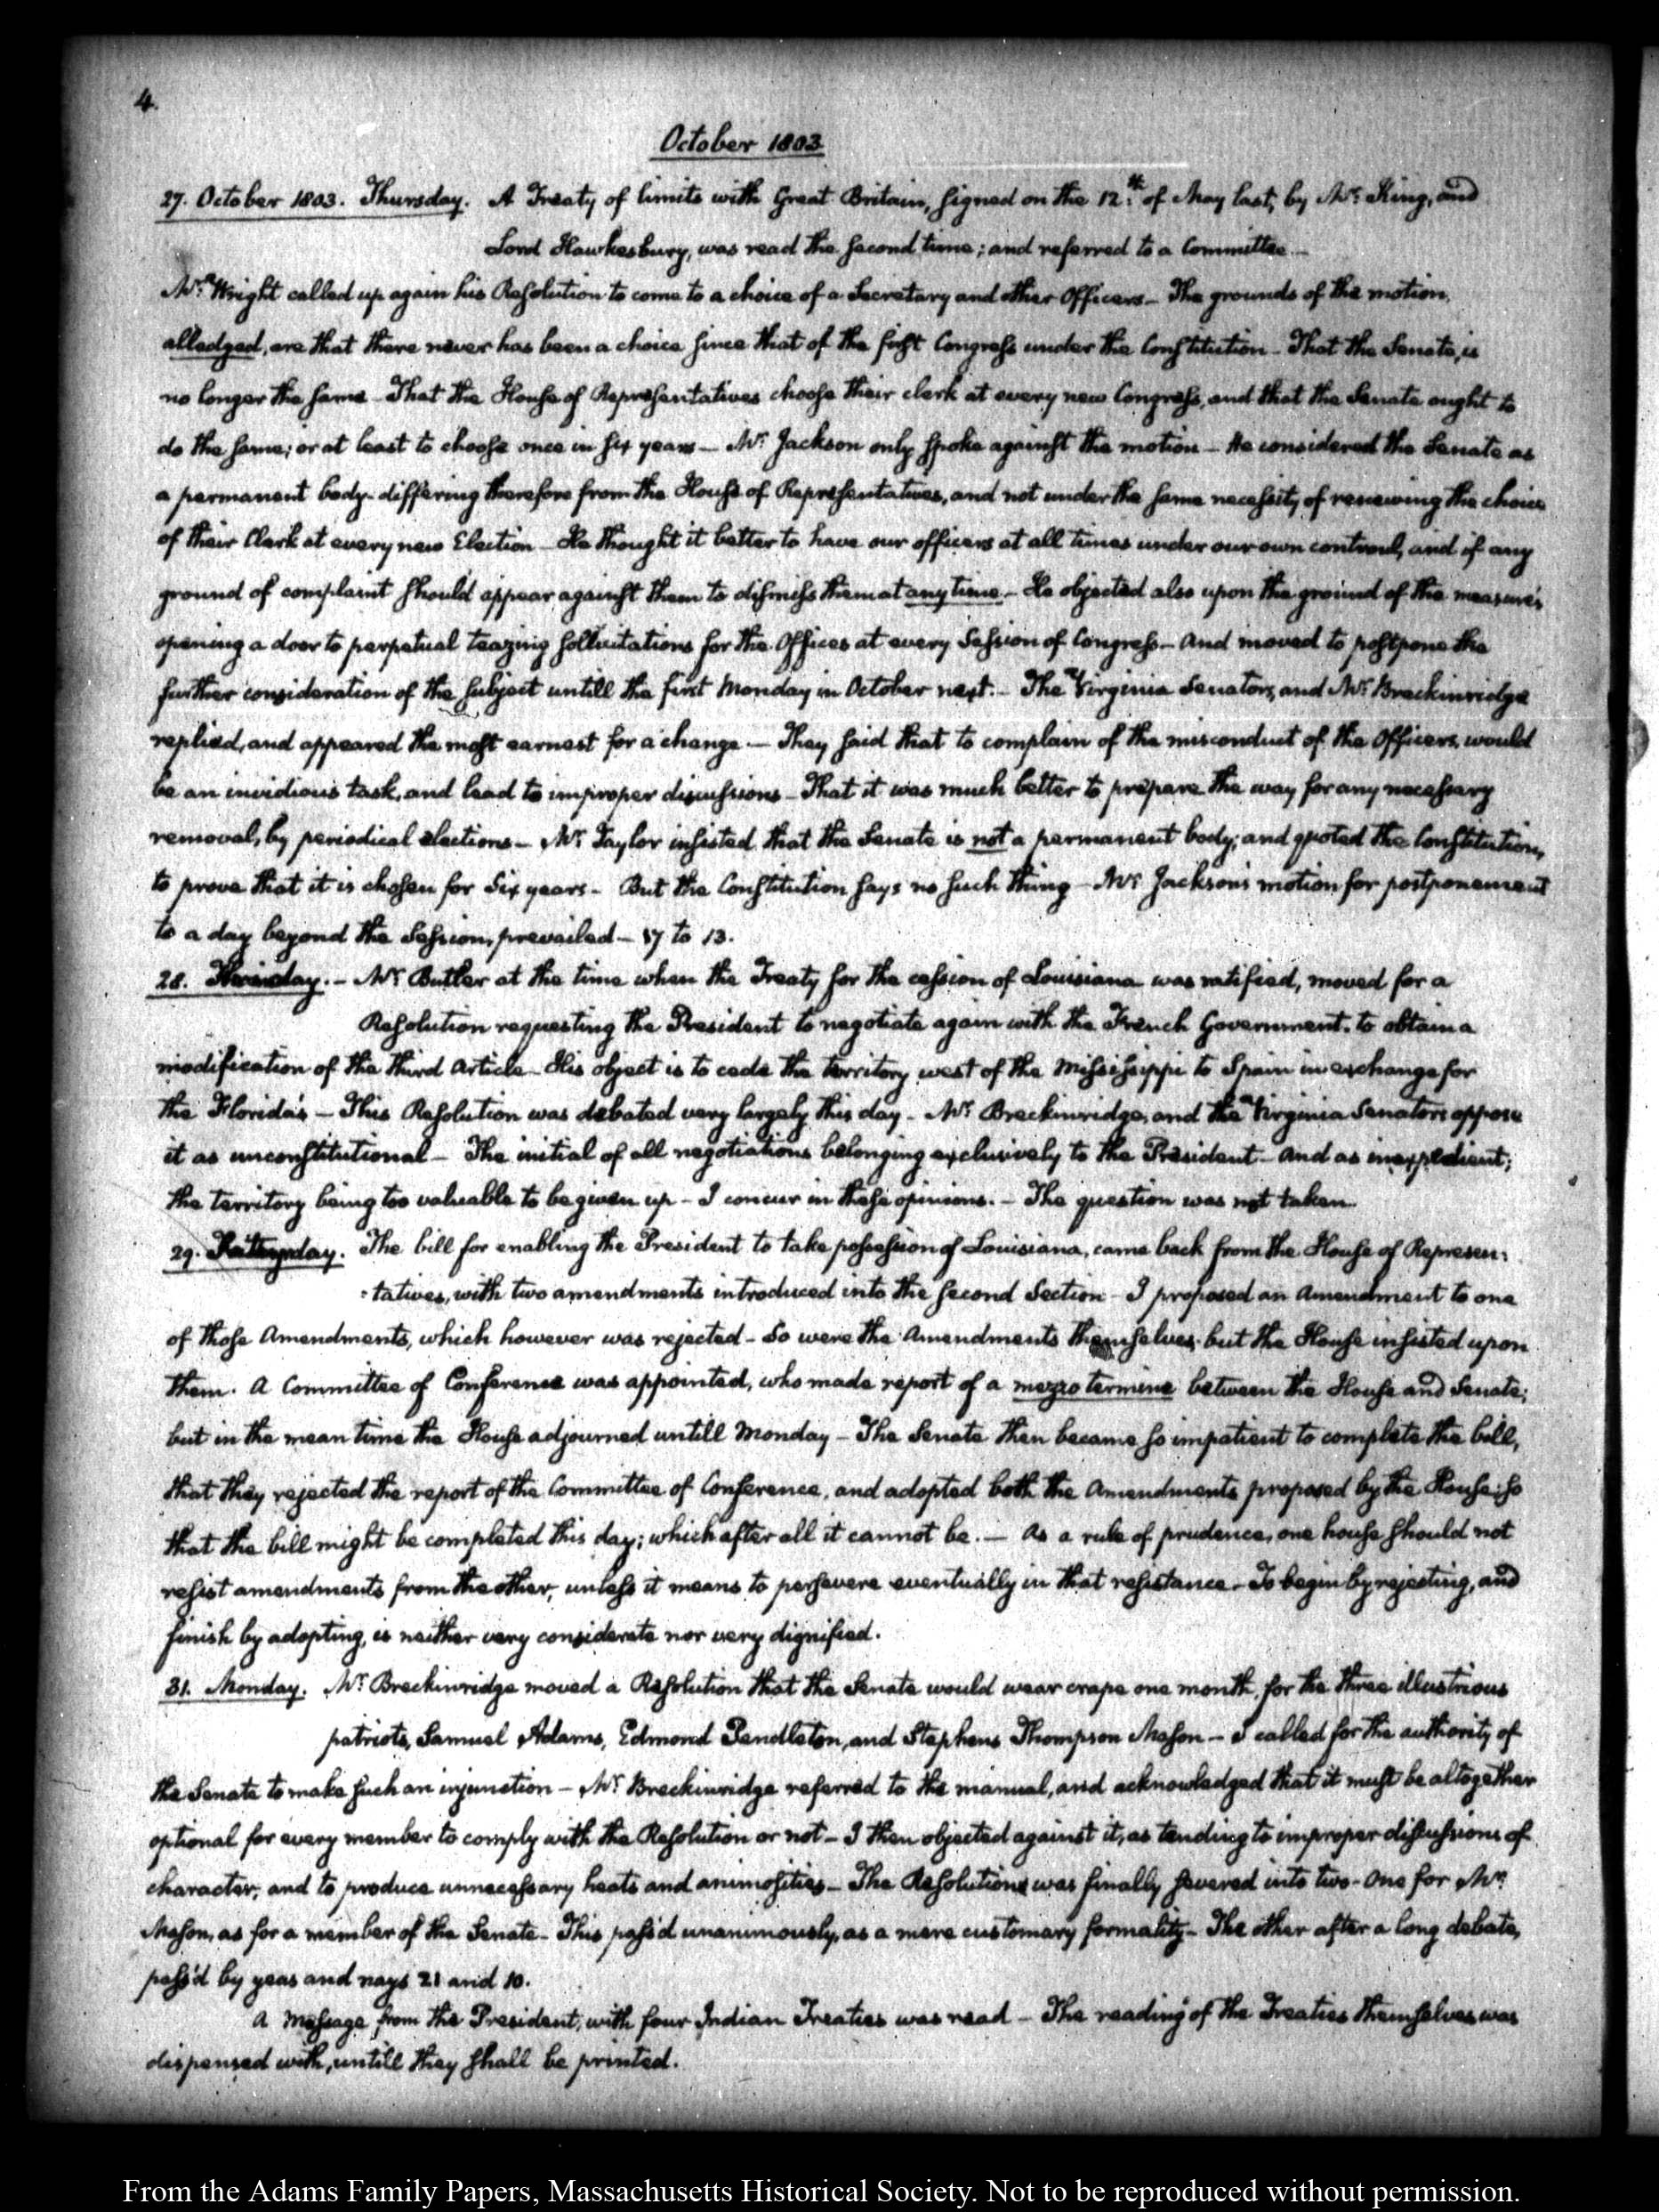 4.
October 1803
27. October 1803. Thursday. A Treaty of limits with Great Britain, signed on the 12.th of May last, by Mr. King, and
Lord Hawkesbury, was read the second time; and referred to a Committee —
Mr. Wright called up again his Resolution to come to a choice of a Secretary and other Officers — The grounds of the motion,
alledged, are that there never has been a choice since that of the first Congress under the Constitution — That the Senate, is
no longer the same — That the House of Representatives choose their clerk at every new Congress, and that the Senate ought to
do the same; or at least to choose once in six years — Mr. Jackson only spoke against the motion — He considered the Senate as
a permanent body — differing therefore from the House of Representatives, and not under the same necessity of renewing the choice
of their Clerk at every new Election — He thought it better to have our officers at all times under our own controul, and if any
ground of complaint should appear against them to dismiss them at any time — He objected also upon the ground of the measure's
opening a door to perpetual teazing sollicitations for the Offices at every Session of Congress — and moved to postpone the
further consideration of the subject untill the first Monday in October next. — The Virginia Senators, and Mr. Breckinridge
replied, and appeared the most earnest for a change — They said that to complain of the misconduct of the Officers, would
be an invidious task, and lead to improper discussions — That it was much better to prepare the way for any necessary
removal, by periodical elections — Mr. Taylor insisted that the Senate is not a permanent body; and quoted the Constitution,
to prove that it is chosen for six years — But the Constitution says no such thing — Mr. Jackson's motion for postponement
to a day beyond the Session, prevailed — 17 to 13.
28. — Mr. Butler at the time when the Treaty for the cession of Louisiana was ratified, moved for a
Resolution requesting the President to negotiate again with the French Government, to obtain a
modification of the third Article — His object is to cede the territory west of the Mississippi to Spain in exchange for
the Florida's — This Resolution was debated very largely this day — Mr. Breckinridge, and the Virginia Senators oppose
it as unconstitutional — The initial of all negotiations belonging exclusively to the President — and as inexpedient;
the territory being too valuable to be given up — I concur in these opinions. — The question was not taken.
29. Saturday. The bill for enabling the President to take possession of Louisiana, came back from the House of Represen:
:tatives, with two amendments introduced into the second Section — I proposed an amendment to one
of those Amendments, which however was rejected — So were the Amendments themselves, but the House insisted upon
them. A Committee of Conference was appointed, who made report of a mezzo termine between the House and Senate;
but in the mean time the House adjourned untill Monday — The Senate then became so impatient to complete the bill,
that they rejected the report of the Committee of Conference, and adopted both the Amendments proposed by the House; so
that the bill might be completed this day; which after all it cannot be. — As a rule of prudence, one house should not
resist amendments from the other, unless it means to persevere eventually in that resistance — To begin by rejecting, and
finish by adopting, is neither very considerate nor very dignified.
31. Monday. Mr. Breckinridge moved a Resolution that the Senate would wear crape one month, for the three illustrious
patriots, Samuel Adams, Edmond Pendleton, and Stephens Thompson Mason — I called for the authority of
the Senate to make such an injunction — Mr. Breckinridge referred to the manual, and acknowledged that it must be altogether
optional for every member to comply with the Resolution or not — I then objected against it, as tending to improper discussions of
character, and to produce unnecessary heats and animosities — The Resolutions was finally severed into two — One for Mr.
Mason, as for a member of the Senate — This pass'd unanimously, as a mere customary formality — The other after a long debate,
pass'd by yeas and nays 21 and 10.
A Message from the President, with four Indian Treaties was read — The reading of the Treaties themselves was
dispensed with, untill they shall be printed.
From the Adams Family Papers, Massachusetts Historical Society. Not to be reproduced without permission.